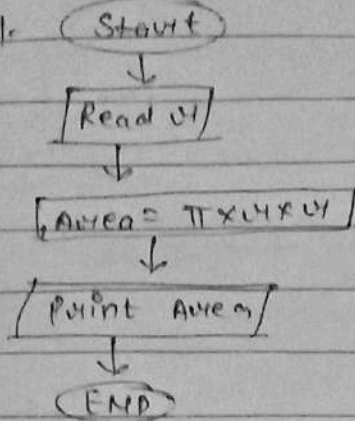 1. Start
Read r
Area = π×r×r
Print Area
END